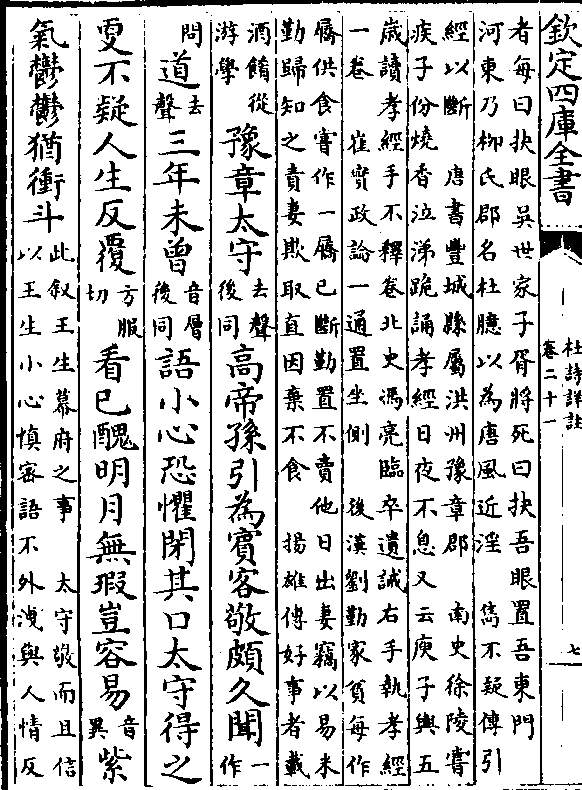 欽定四庫全書
杜詩詳註
卷二十一
七
者每曰抉眼吳世家子胥將死曰抉吾眼置吾東門
河東乃柳氏郡名杜臆以為唐風近淫　雋不疑傳引
經以斷　唐書豐城縣屬洪州豫章郡　南史徐陵嘗
疾子份燒香泣涕跪誦孝經日夜不息又云庾子輿五
歲讀孝經手不釋卷北史馮亮臨卒遺誡右手執孝經
一卷　崔寔政論一通置坐側　後漢劉勤家貧每作
屩供食嘗作一屩已斷勤置不賣他日出妻竊以易米
勤歸知之責妻欺取直因棄不食　揚雄傳好事者載
酒餚從游學　豫章太守去聲後同高帝孫引為賓客敬頗久聞一作
問道去聲三年未曾音層後同語小心恐懼閉其口太守得之
更不疑人生反覆方服切看已醜明月無瑕豈容易音異紫
氣鬱鬱猶衝斗此叙王生幕府之事　太守敬而且信以王生小心慎密語不外洩與人情反